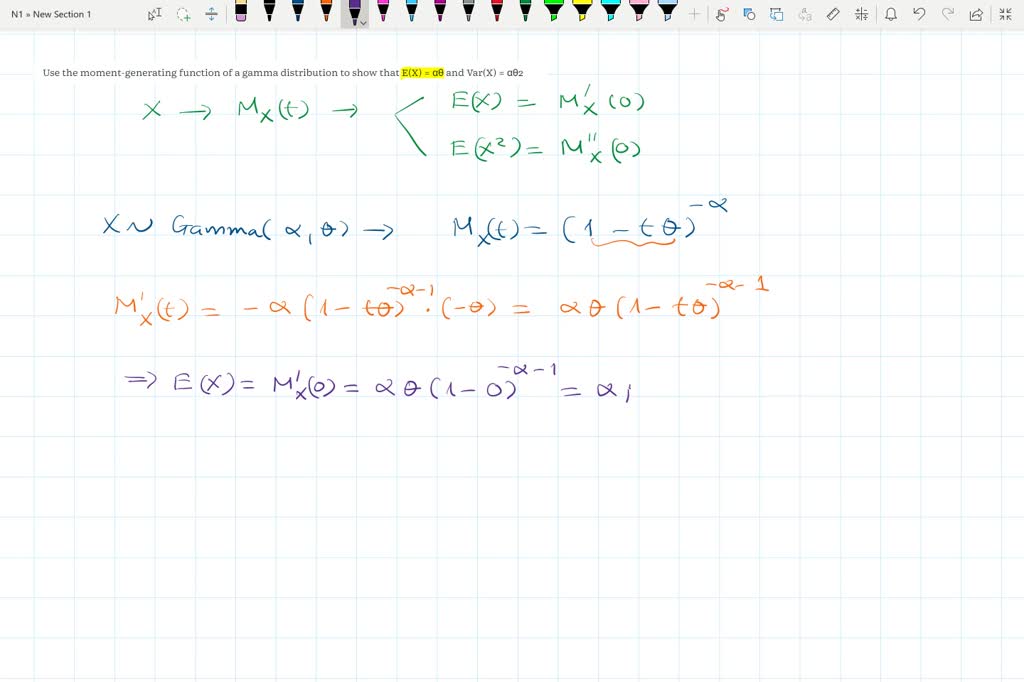 N1 » New Section 1
Use the moment-generating function of a gamma distribution to show that E(X) = αθ and Var(X) = αθ2
X → M_X(t) → < E(X) = M'_X(0)
E(X²) = M''_X(0)
X ~ Gamma(α, θ) → M_X(t) = (1 - tθ)^{-α}
M'_X(t) = -α(1 - tθ)^{-α-1} · (-θ) = αθ(1 - tθ)^{-α-1}
⇒ E(X) = M'_X(0) = αθ(1 - 0)^{-α-1} = α